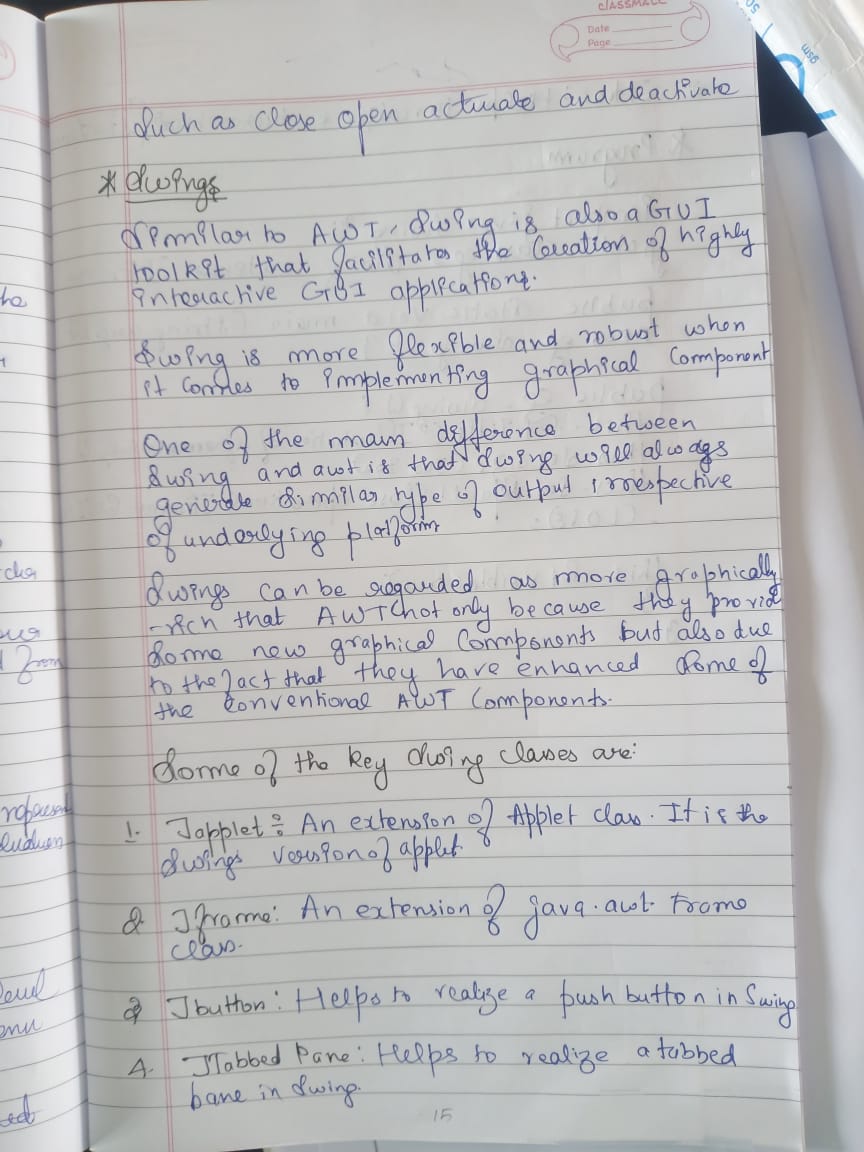 CLASSMATE
Date
Page
Such as close open actuate and deactivate
* Swings
Similar to AWT, Swing is also a GUI
toolkit that facilitates the Creation of highly
interactive GUI applications.
Swing is more flexible and robust when
it Comes to implementing graphical Component
One of the main difference between
Swing and awt is that Swing will always
generate Similar type of output irrespective
of underlying platform
Swings can be regarded as more graphically
-rich that AWT Not only because they provid
Some new graphical Components but also due
to the fact that they have enhanced Some of
the Conventional AWT Components.
Some of the key Swing classes are:
1. Japplet : An extension of Applet class. It is the
Swings version of applet
2 Jframe: An extension of java.awt. Frame
class.
Jbutton: Helps to realize a push button in Swing
4. JTabbed Pane: Helps to realize a tabbed
bane in Swing.
15
gsm